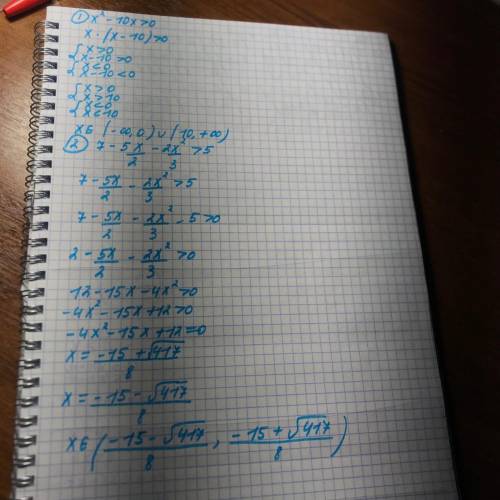 ① x² - 10x > 0
x · (x - 10) > 0
{ x > 0
{ x - 10 > 0
{ x < 0
{ x - 10 < 0
{ x > 0
{ x > 10
{ x < 0
{ x < 10
x ∈ (-∞, 0) ∪ (10, +∞)
② 7 - 5x/2 - 2x²/3 > 5
7 - 5x/2 - 2x²/3 > 5
7 - 5x/2 - 2x²/3 - 5 > 0
2 - 5x/2 - 2x²/3 > 0
12 - 15x - 4x² > 0
-4x² - 15x + 12 > 0
-4x² - 15x + 12 = 0
x = -15 + √417/8
x = -15 - √417/8
x ∈ (-15 - √417/8, -15 + √417/8)